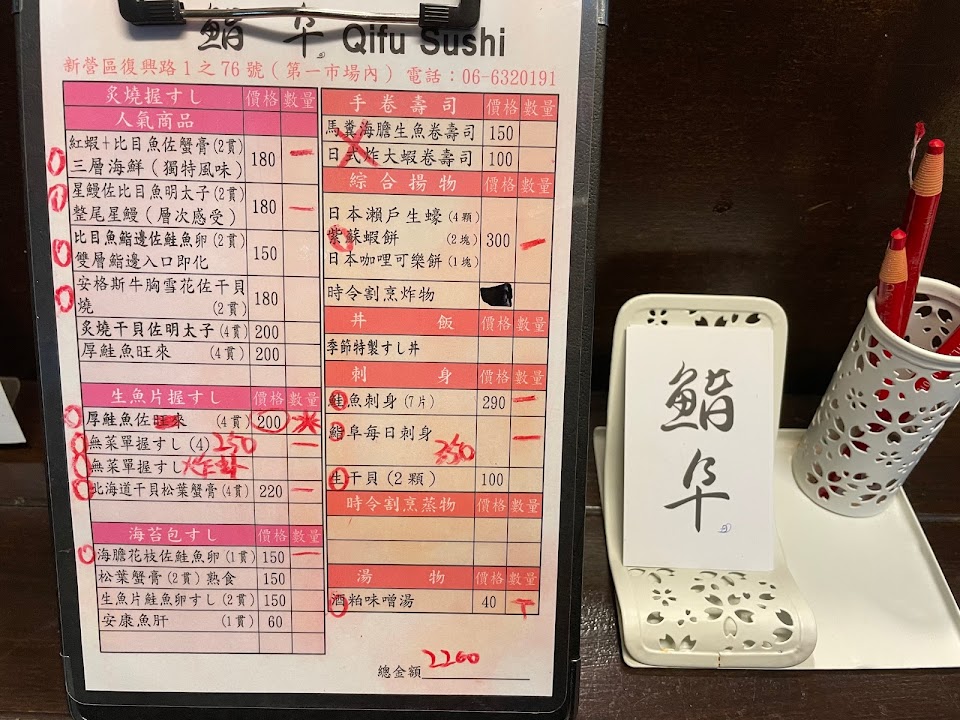 鮨 阜 Qifu Sushi
新營區復興路1之76號(第一市場內) 電話:06-6320191
炙燒握すし 價格 數量
人氣商品
紅蝦+比目魚佐蟹膏(2貫)
三層海鮮(獨特風味) 180
星鰻佐比目魚明太子(2貫)
整尾星鰻(層次感受) 180
比目魚鮨邊佐鮭魚卵(2貫)
雙層鮨邊入口即化 150
安格斯牛胸雪花佐干貝
燒 (2貫) 180
炙燒干貝佐明太子(4貫) 200
厚鮭魚旺來 (4貫) 200
生魚片握すし 價格 數量
厚鮭魚佐旺來 (4貫) 200
無菜單握すし(4) 250
無菜單握すし
北海道干貝松葉蟹膏(4貫) 220
海苔包すし 價格 數量
海膽花枝佐鮭魚卵(1貫) 150
松葉蟹膏(2貫)熟食 150
生魚片鮭魚卵すし(2貫) 150
安康魚肝 (1貫) 60
手卷壽司 價格 數量
馬糞海膽生魚卷壽司 150
日式炸大蝦卷壽司 100
綜合揚物 價格 數量
日本瀨戶生蠔(4顆)
紫蘇蝦餅 (2塊) 300
日本咖哩可樂餅(1塊)
時令割烹炸物
丼飯 價格 數量
季節特製すし丼
刺身 價格 數量
鮭魚刺身(7片) 290
鮨阜每日刺身
350
生干貝(2顆) 100
時令割烹蒸物 價格 數量
湯物 價格 數量
酒粕味噌湯 40
總金額 2260
鮨
阜